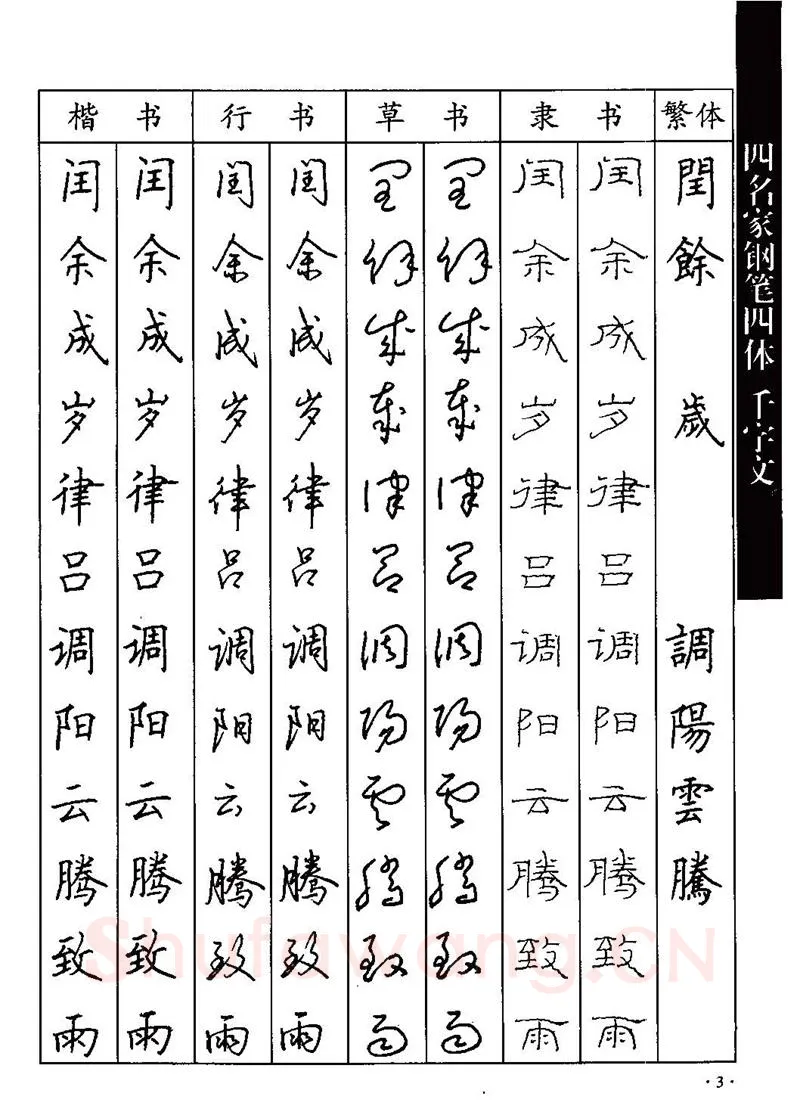 楷书 行书 草书 隶书 繁体
闰 闰 闰 闰 闰 闰 闰 闰 閏
余 余 余 余 余 余 余 余 餘
成 成 成 成 成 成 成 成
岁 岁 岁 岁 岁 岁 岁 岁 歲
律 律 律 律 律 律 律 律
吕 吕 吕 吕 吕 吕 吕 吕
调 调 调 调 调 调 调 调 調
阳 阳 阳 阳 阳 阳 阳 阳 陽
云 云 云 云 云 云 云 云 雲
腾 腾 腾 腾 腾 腾 腾 腾 騰
致 致 致 致 致 致 致 致
雨 雨 雨 雨 雨 雨 雨 雨
四名家钢笔四体 千字文
Shufawang.CN
·3·